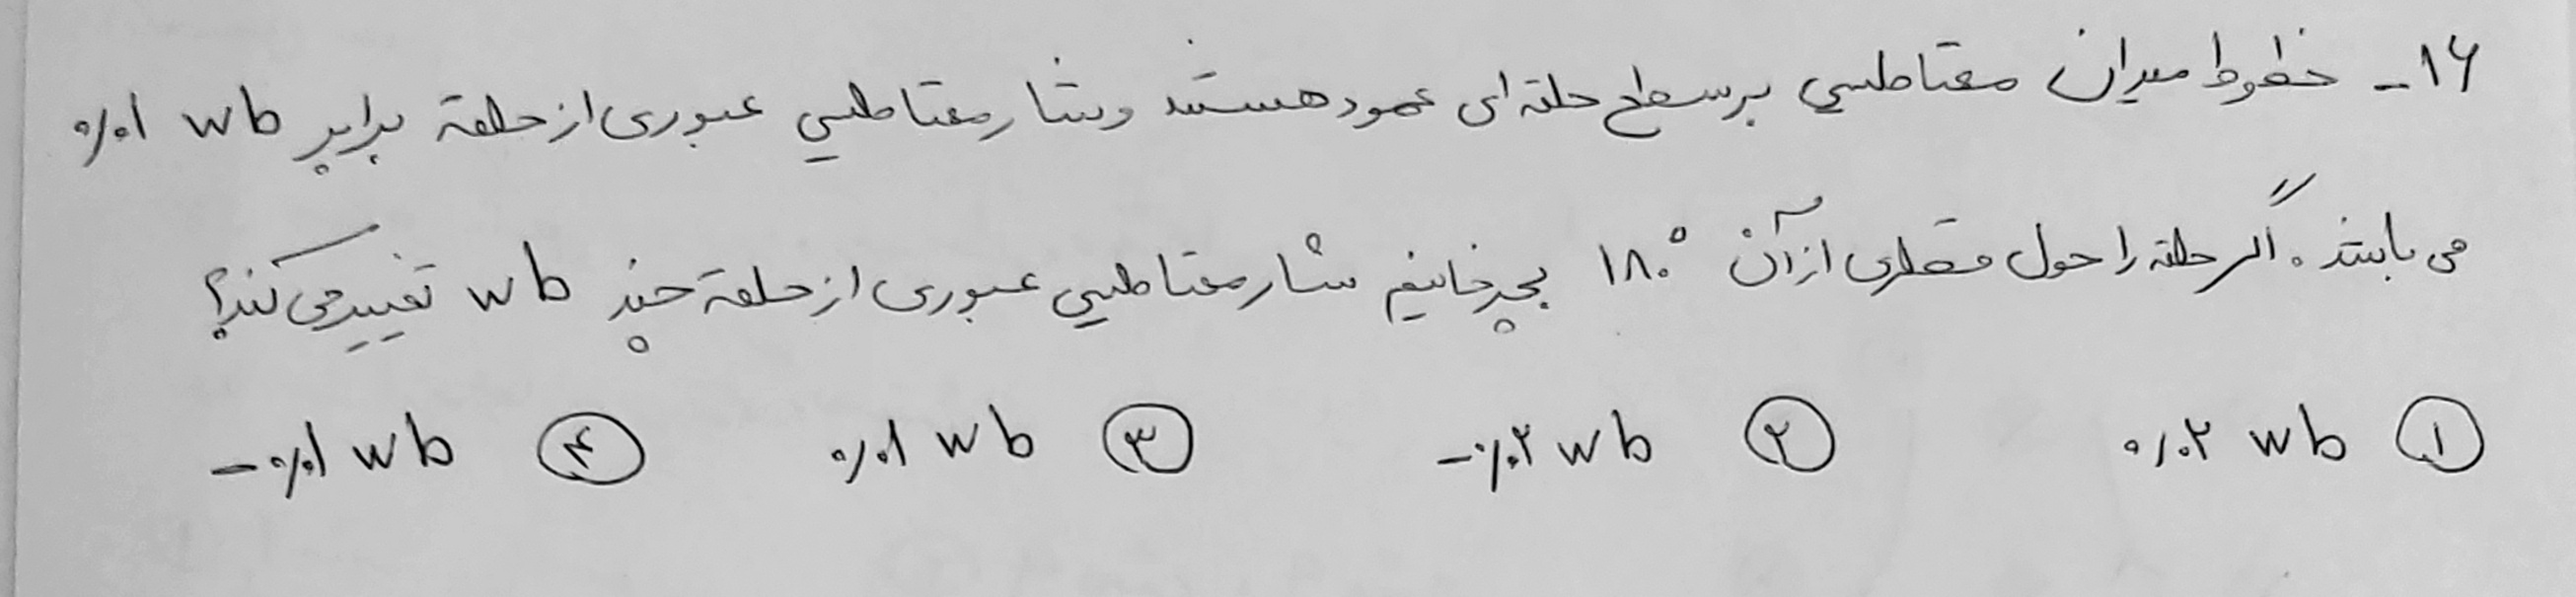 ۱۶- خطوط میدان مغناطیسی بر سطح حلقه ای عمود هستند و شار مغناطیسی عبوری از حلقه برابر ۰/۰۱ wb
می باشد. اگر حلقه را حول قطری از آن ۱۸۰° بچرخانیم شار مغناطیسی عبوری از حلقه چند wb تغییر می کند؟
۱ ۰/۰۲ wb ۲ -۰/۰۲ wb ۳ ۰/۰۱ wb ۴ -۰/۰۱ wb